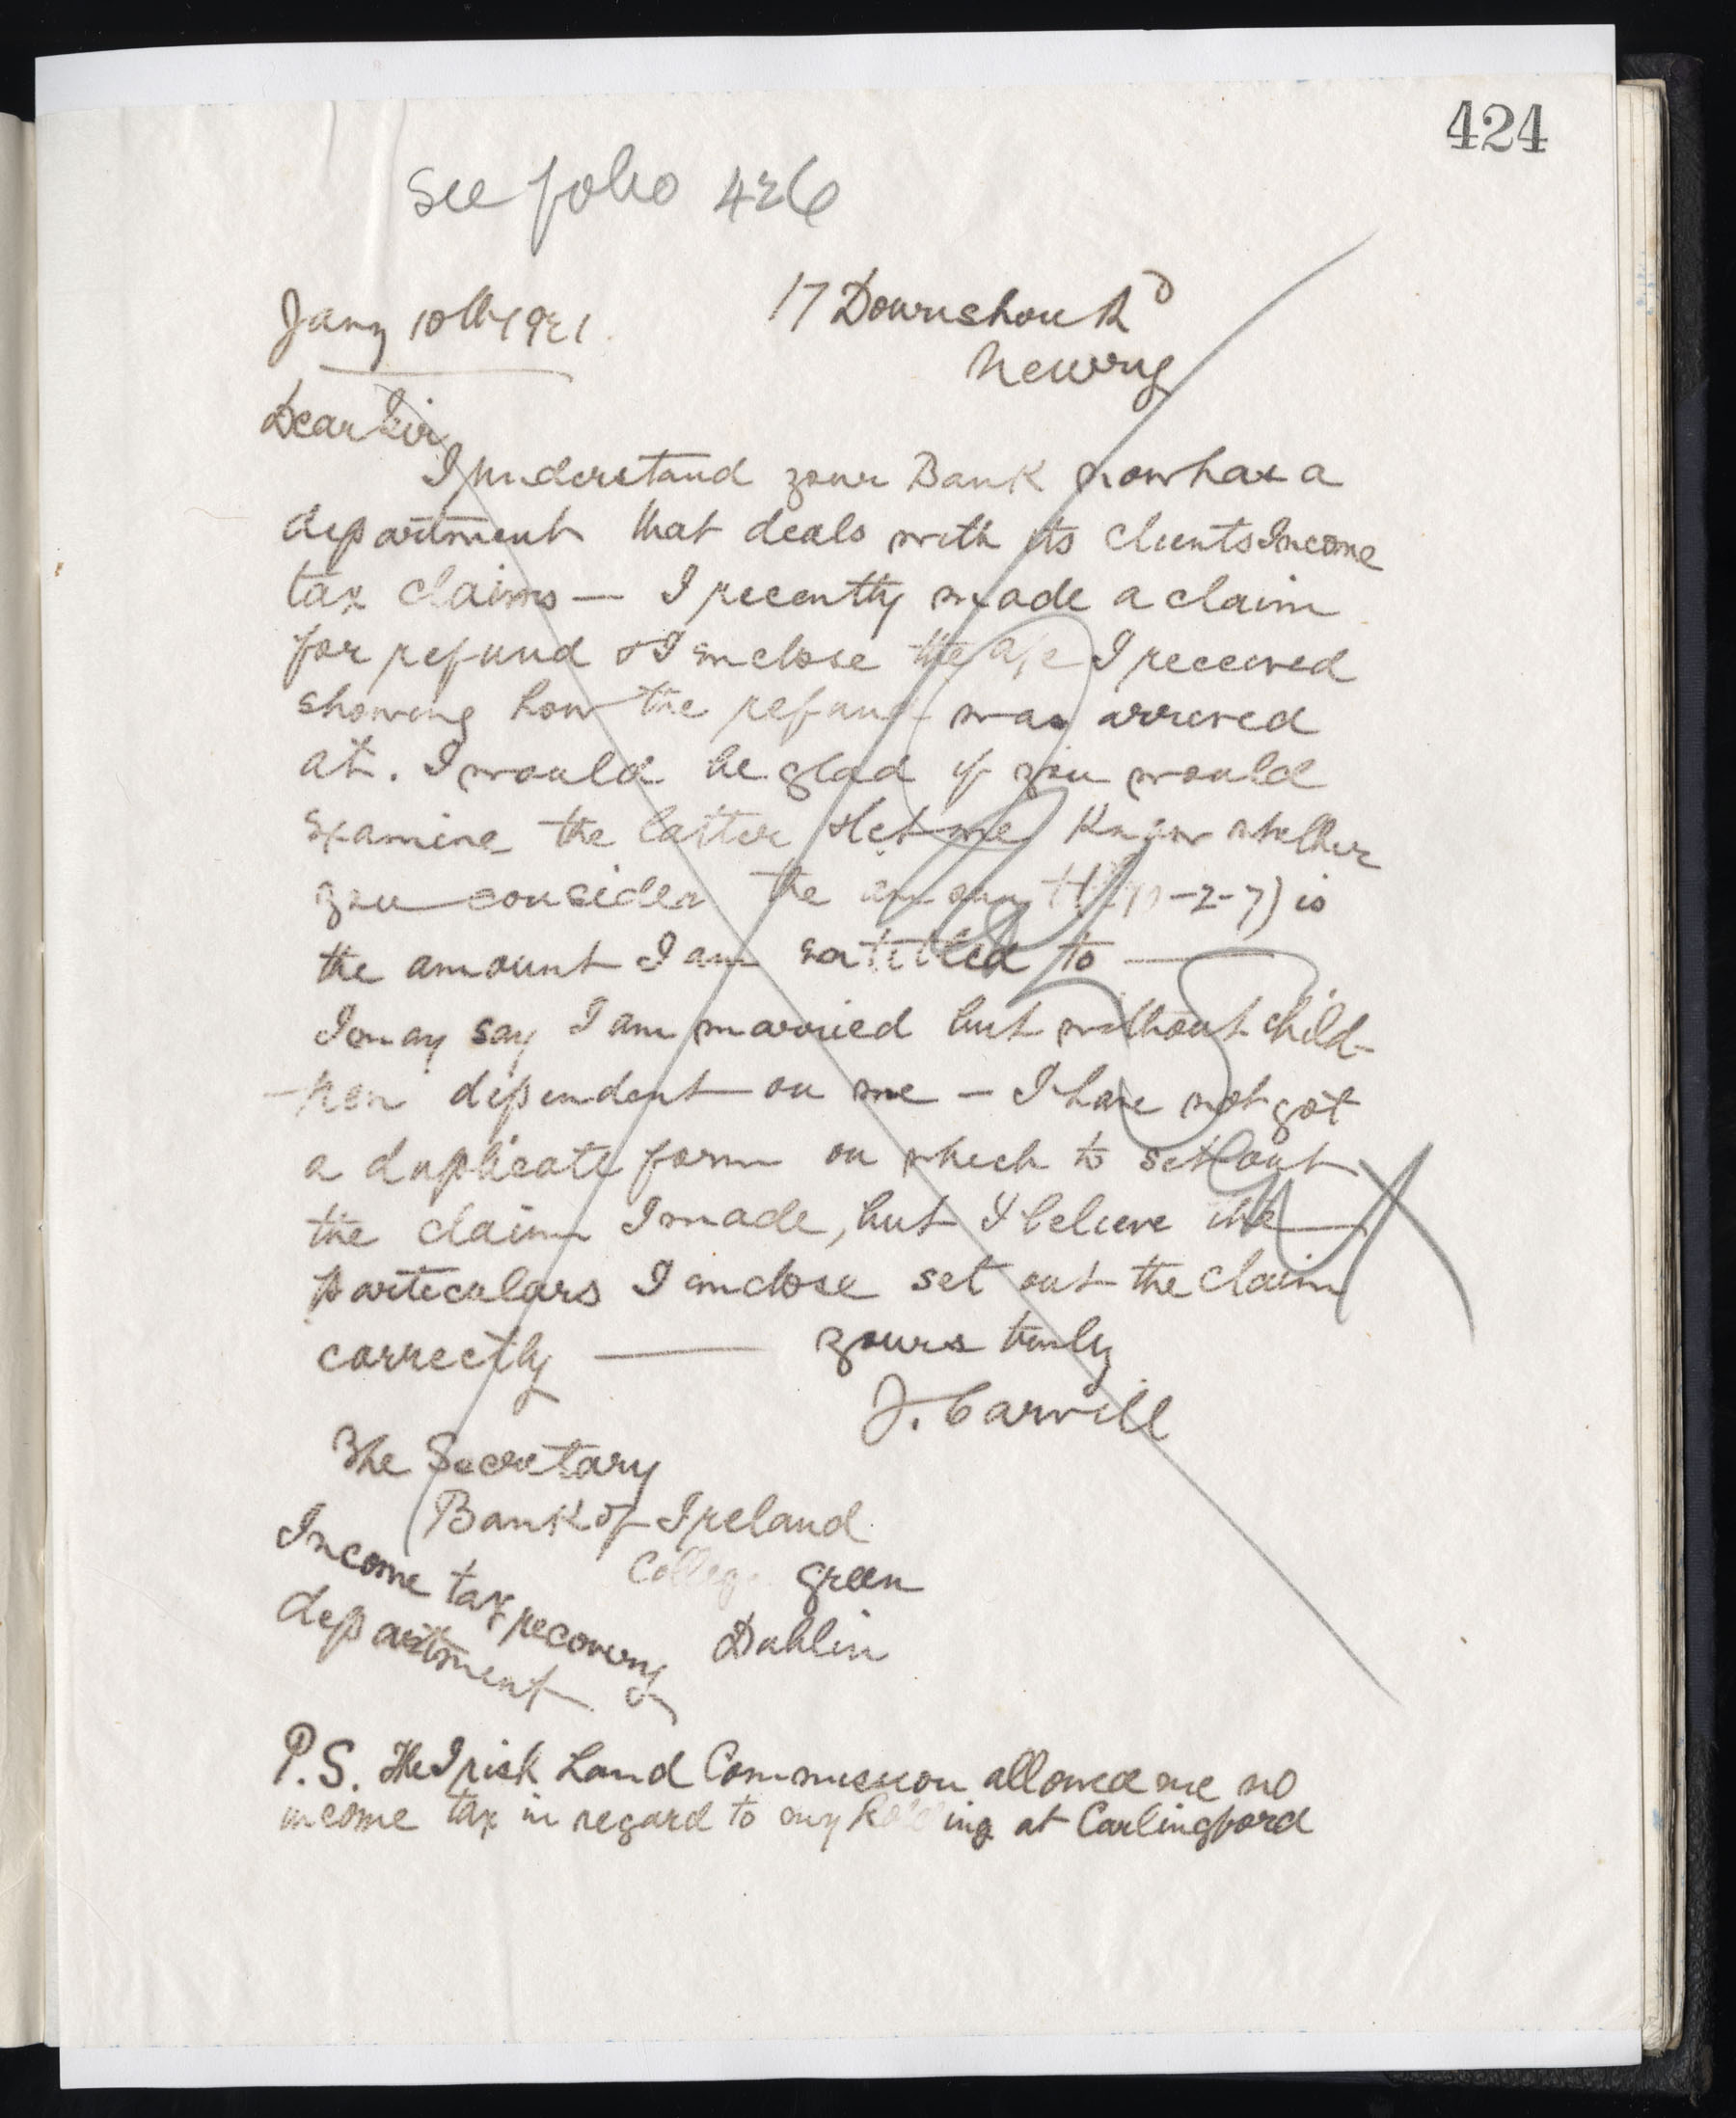 424
See folio 426
17 Downshour Rd
Jany 10th 1921
Newry
Dear Sir
I understand your Bank now has a
department that deals with its clients Income
tax claims — I recently made a claim
for refund & I enclose the a/c I received
showing how the refund was arrived
at. I would be glad if you would
examine the latter & let me know whether
you consider the amount -2-7) is
the amount I am entitled to —
I may say I am married but without child-
-ren dependent on me — I have not got
a duplicate form on which to set out
the claim I made, but I believe the
particulars I enclose set out the claim
correctly — yours truly
J. Carvill
The Secretary
Bank of Ireland
College Green
Dublin
Income tax recovery
department
P.S. The Irish Land Commission allowed me no
income tax in regard to my holding at Carlingford